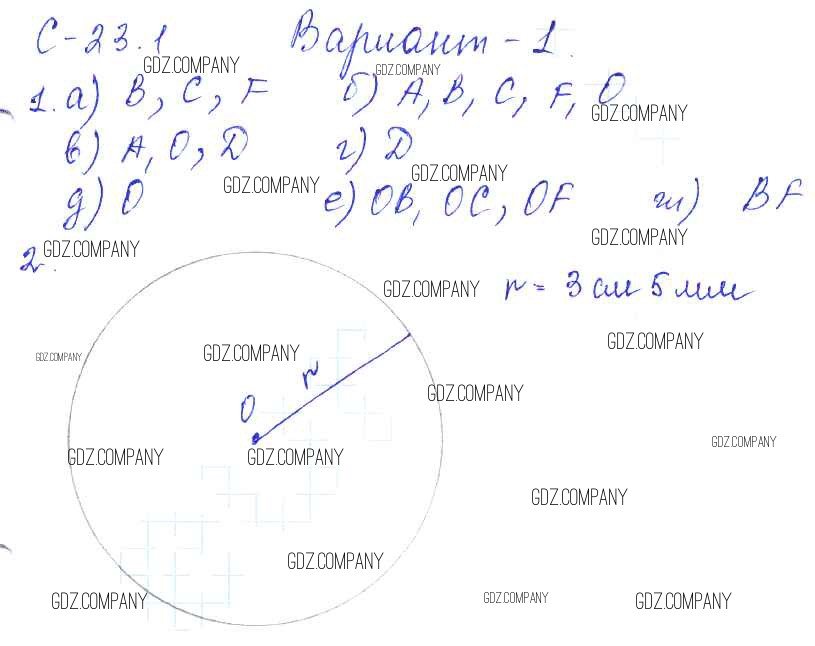 С-23.1 Вариант-1.
GDZ.COMPANY GDZ.COMPANY
1. а) B, C, F б) A, B, C, F, O
GDZ.COMPANY
в) A, O, D г) D
GDZ.COMPANY GDZ.COMPANY
д) O е) OB, OC, OF ж) BF
GDZ.COMPANY GDZ.COMPANY
2.
GDZ.COMPANY r = 3 см 5 мм
GDZ.COMPANY
GDZ.COMPANY GDZ.COMPANY
r
GDZ.COMPANY
O
GDZ.COMPANY
GDZ.COMPANY GDZ.COMPANY
GDZ.COMPANY
GDZ.COMPANY
GDZ.COMPANY GDZ.COMPANY GDZ.COMPANY